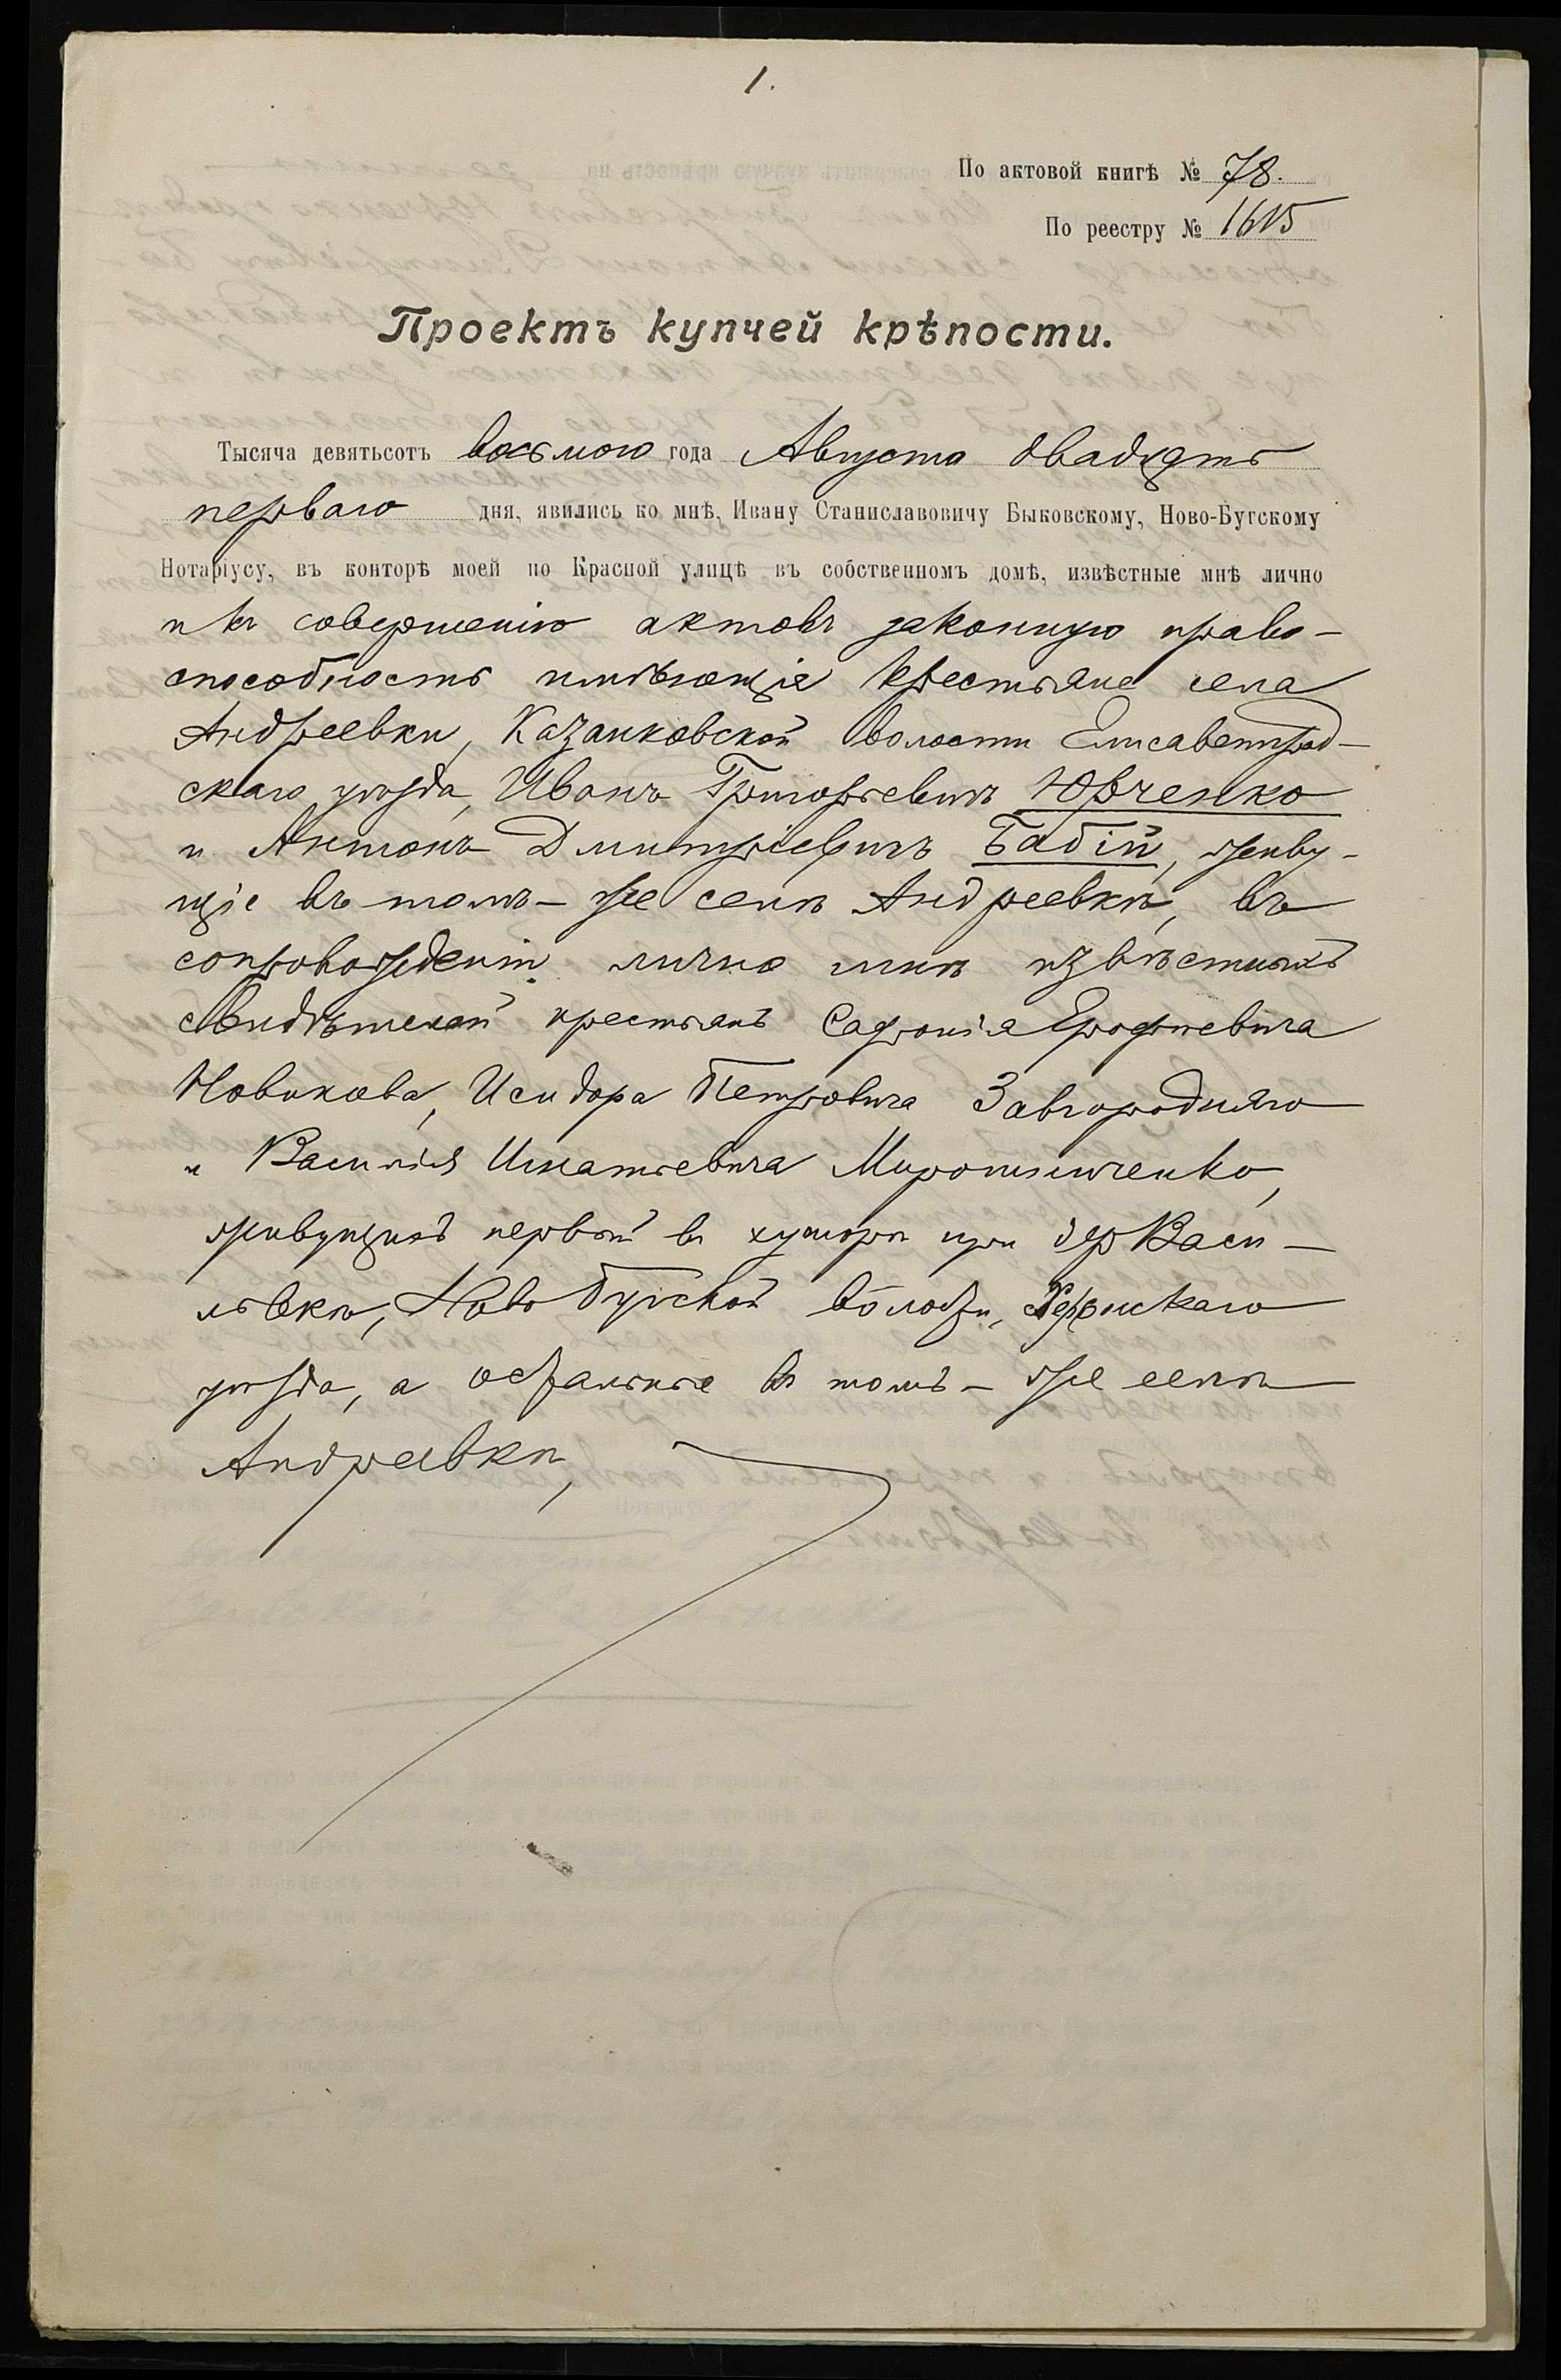 1.
По актовой книгѣ № 78.
По реестру № 1615
Проектъ купчей крѣпости.
Тысяча девятьсотъ восьмого года Августа двадцать
перваго дня, явились ко мнѣ, Ивану Станиславовичу Быковскому, Ново-Бугскому
Нотаріусу, въ конторѣ моей по Красной улицѣ въ собственномъ домѣ, извѣстные мнѣ лично
и къ совершенію актовъ законную право-
способность имѣющіе крестьяне села
Андреевки, Казанковской волости Елисаветград-
скаго уѣзда, Иванъ Григорьевичъ Юрченко
и Антонъ Дмитріевичъ Бабій, живу-
щіе въ томъ-же селѣ Андреевкѣ, въ
сопровожденіи лично мнѣ извѣстныхъ
свидѣтелей крестьянъ Сафонія Ерофѣевича
Новикова, Исидора Петровича Завгородняго
и Василія Игнатьевича Мирошниченко,
живущихъ первый въ хуторѣ при дер Васи-
льевкѣ, Ново Бугской волости, Херсонскаго
уѣзда, а остальные въ томъ-же селѣ
Андреевкѣ,